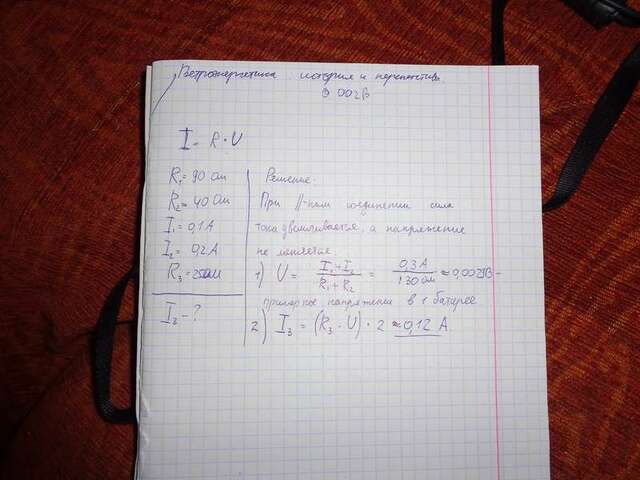 Ветроэнергетика: история и перспективы
I = R · U
R₁ = 90 Ом
R₂ = 40 Ом
I₁ = 0,1 А
I₂ = 0,2 А
R₃ = Ом
I₃ - ?
Решение:
При ||-ном соединении сила
тока удваивается, а напряжение
не меняется.
1) U = (I₁ + I₂)/(R₁ + R₂) = 0,3 А/130 Ом ≈ 0,0023В -
примерное напряжение в 1 батарее
2) I₃ = (R₃ · U) · 2 ≈ 0,12 А.